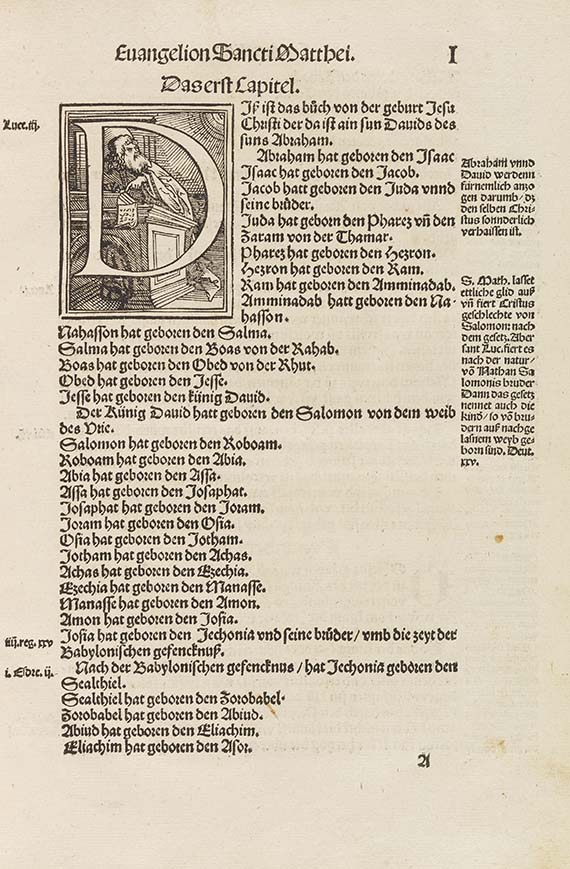 Euangelion Sancti Matthei. I
Das erst Capitel.
Luce. iij.
DIß ist das bůch von der geburt Jesu
Christi der da ist ain sun Dauids des
suns Abraham.
Abraham hat geboren den Isaac
Isaac hat geboren den Jacob.
Jacob hatt geboren den Juda vnnd
seine brüder.
Juda hat geborn den Pharez vñ den
Zaram von der Thamar.
Pharez hat geboren den Hezron.
Hezron hat geboren den Ram.
Ram hat geboren den Amminadab.
Amminadab hatt geboren den Na-
hasson.
Nahasson hat geboren den Salma.
Salma hat geboren den Boas von der Rahab.
Boas hat geboren den Obed von der Rhut.
Obed hat geboren den Jesse.
Jesse hat geboren den künig Dauid.
Der Künig Dauid hatt geboren den Salomon von dem weib
des Vrie.
Salomon hat geboren den Roboam.
Roboam hat geboren den Abia.
Abia hat geboren den Assa.
Assa hat geboren den Josaphat.
Josaphat hat geboren den Joram.
Joram hat geboren den Osia.
Osia hat geboren den Jotham.
Jotham hat geboren den Achas.
Achas hat geboren den Ezechia.
Ezechia hat geboren den Manasse.
Manasse hat geboren den Amon.
Amon hat geboren den Josia.
iiij. reg. xxv
Josia hat geboren den Jechonia vnd seine brüder / vmb die zeyt der
Babylonischen gefencknuß.
i. Esdre. ij.
Nach der Babylonischen gefencknus / hat Jechonia geboren den
Sealthiel.
Sealthiel hat geboren den Zorobabel.
Zorobabel hat geboren den Abiud.
Abiud hat geboren den Eliachim.
Eliachim hat geboren den Asor.
A
Abraham vnnd
Dauid werdenn
fürnemlich anzo
gen darumb / dz
den selben Chri-
stus sonnderlich
verhaissen ist.
S. Math. lasset
ettliche glid auß
vñ fiert Cristus
geschlechte von
Salomon: nach
dem gesetz. Aber
sant Luc. fiert es
nach der natur /
võ Nathan Sa
lomonis bruder
Dann das gesetz
nennet auch die
kind / so võ brü-
dern auß nachge
laßnem weyb ge-
born sind. Deut.
xxv.